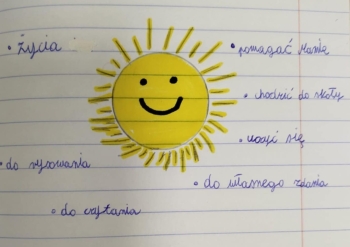 • życia
• pomagać mamie
• chodzić do szkoły
• uczyć się
• do rysowania
• do własnego zdania
• do czytania